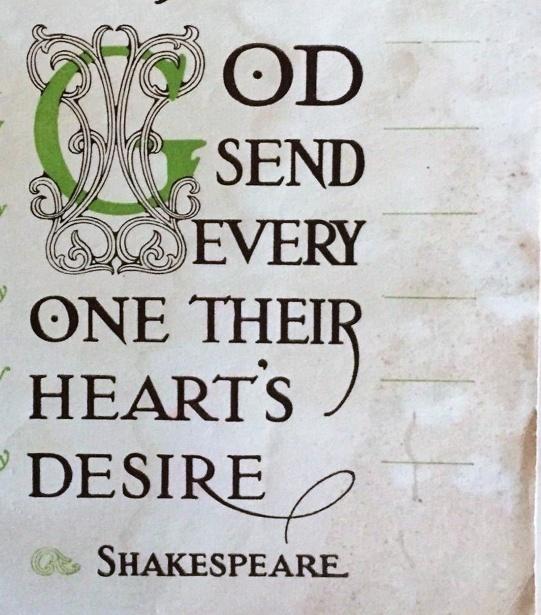 GOD
SEND
EVERY
ONE THEIR
HEART'S
DESIRE
SHAKESPEARE.